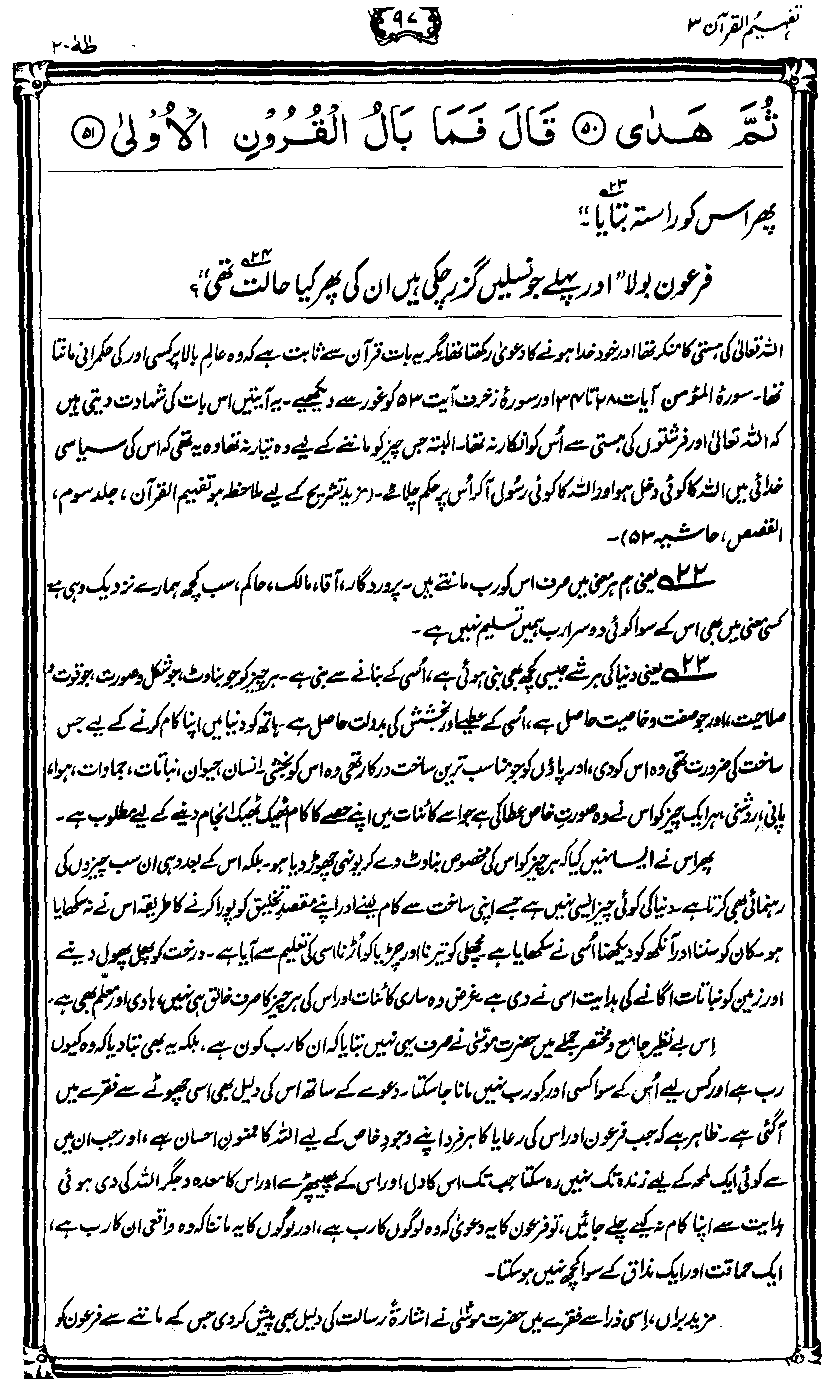 تفہیم القرآن ۳
۹۷
طٰہٰ ۲۰
ثُمَّ هَدٰى ﴿۵۰﴾ قَالَ فَمَا بَالُ الْقُرُوْنِ الْاُوْلٰى ﴿۵۱﴾
پھر اس کو راستہ بتایا۲۳۔“
فرعون بولا ”اور پہلے جو نسلیں گزر چکی ہیں ان کی پھر کیا حالت تھی۲۴“؟
اللہ تعالیٰ کی ہستی کا منکر تھا اور خود خدا ہونے کا دعویٰ رکھتا تھا، مگر یہ بات قرآن سے ثابت ہے کہ وہ عالمِ بالا پر کسی اور کی حکمرانی مانتا
تھا۔ سورۂ المؤمن آیات ۲۸ تا ۳۴ اور سورۂ زخرف آیت ۵۳ کو غور سے دیکھیے۔ یہ آیتیں اس بات کی شہادت دیتی ہیں
کہ اللہ تعالیٰ اور فرشتوں کی ہستی سے اُس کو انکار نہ تھا۔ البتہ جس چیز کو ماننے کے لیے وہ تیار نہ تھا وہ یہ تھی کہ اس کی سیاسی
خدائی میں اللہ کا کوئی دخل ہو اور اللہ کا کوئی رسول آ کر اُس پر حکم چلائے۔ (مزید تشریح کے لیے ملاحظہ ہو تفہیم القرآن، جلد سوم،
القصص، حاشیہ ۵۳)۔
۲۲ یعنی ہم ہر معنی میں صرف اس کو رب مانتے ہیں۔ پروردگار، آقا، مالک، حاکم، سب کچھ ہمارے نزدیک وہی ہے
کسی معنی میں بھی اس کے سوا کوئی دوسرا رب ہمیں تسلیم نہیں ہے۔
۲۳ یعنی دنیا کی ہر شے جیسی کچھ بھی بنی ہوئی ہے، اُسی کے بنانے سے بنی ہے۔ ہر چیز کو جو بناوٹ، جو شکل و صورت، جو قوت و
صلاحیت، اور جو صفت و خاصیت حاصل ہے، اُسی کے عطیے اور بخشش کی بدولت حاصل ہے۔ ہاتھ کو دنیا میں اپنا کام کرنے کے لیے جس
ساخت کی ضرورت تھی وہ اس کو دی، اور پاؤں کو جو مناسب ترین ساخت درکار تھی وہ اس کو بخشی۔ انسان، حیوان، نباتات، جمادات، ہوا،
پانی، روشنی، ہر ایک چیز کو اس نے وہ صورتِ خاص عطا کی ہے جو اسے کائنات میں اپنے حصے کا کام ٹھیک ٹھیک انجام دینے کے لیے مطلوب ہے۔
پھر اس نے ایسا نہیں کیا کہ ہر چیز کو اس کی مخصوص بناوٹ دے کر یونہی چھوڑ دیا ہو۔ بلکہ اس کے بعد وہی ان سب چیزوں کی
رہنمائی بھی کرتا ہے۔ دنیا کی کوئی چیز ایسی نہیں ہے جسے اپنی ساخت سے کام لینے اور اپنے مقصدِ تخلیق کو پورا کرنے کا طریقہ اس نے نہ سکھایا
ہو۔ کان کو سننا اور آنکھ کو دیکھنا اُسی نے سکھایا ہے۔ مچھلی کو تیرنا اور چڑیا کو اُڑنا اسی کی تعلیم سے آیا ہے۔ درخت کو پھل پھول دینے
اور زمین کو نباتات اگانے کی ہدایت اسی نے دی ہے۔ غرض وہ ساری کائنات اور اس کی ہر چیز کا صرف خالق ہی نہیں، ہادی اور معلّم بھی ہے۔
اِس بے نظیر جامع و مختصر جملے میں حضرت موسیٰؑ نے صرف یہی نہیں بتایا کہ ان کا رب کون ہے، بلکہ یہ بھی بتا دیا کہ وہ کیوں
رب ہے اور کس لیے اُس کے سوا کسی اور کو رب نہیں مانا جا سکتا۔ دعوے کے ساتھ اس کی دلیل بھی اسی چھوٹے سے فقرے میں
آگئی ہے۔ ظاہر ہے کہ جب فرعون اور اس کی رعایا کا ہر فرد اپنے وجودِ خاص کے لیے اللہ کا ممنونِ احسان ہے، اور جب ان میں
سے کوئی ایک لمحہ کے لیے زندہ تک نہیں رہ سکتا جب تک اس کا دل اور اس کے پھیپھڑے اور اس کا معدہ و جگر اللہ کی دی ہوئی
ہدایت سے اپنا کام نہ کیے چلے جائیں، تو فرعون کا یہ دعویٰ کہ وہ لوگوں کا رب ہے، اور لوگوں کا یہ ماننا کہ وہ واقعی ان کا رب ہے،
ایک حماقت اور ایک مذاق کے سوا کچھ نہیں ہو سکتا۔
مزید براں، اِسی ذرا سے فقرے میں حضرت موسیٰؑ نے اشارۃً رسالت کی دلیل بھی پیش کر دی جس کے ماننے سے فرعون کو